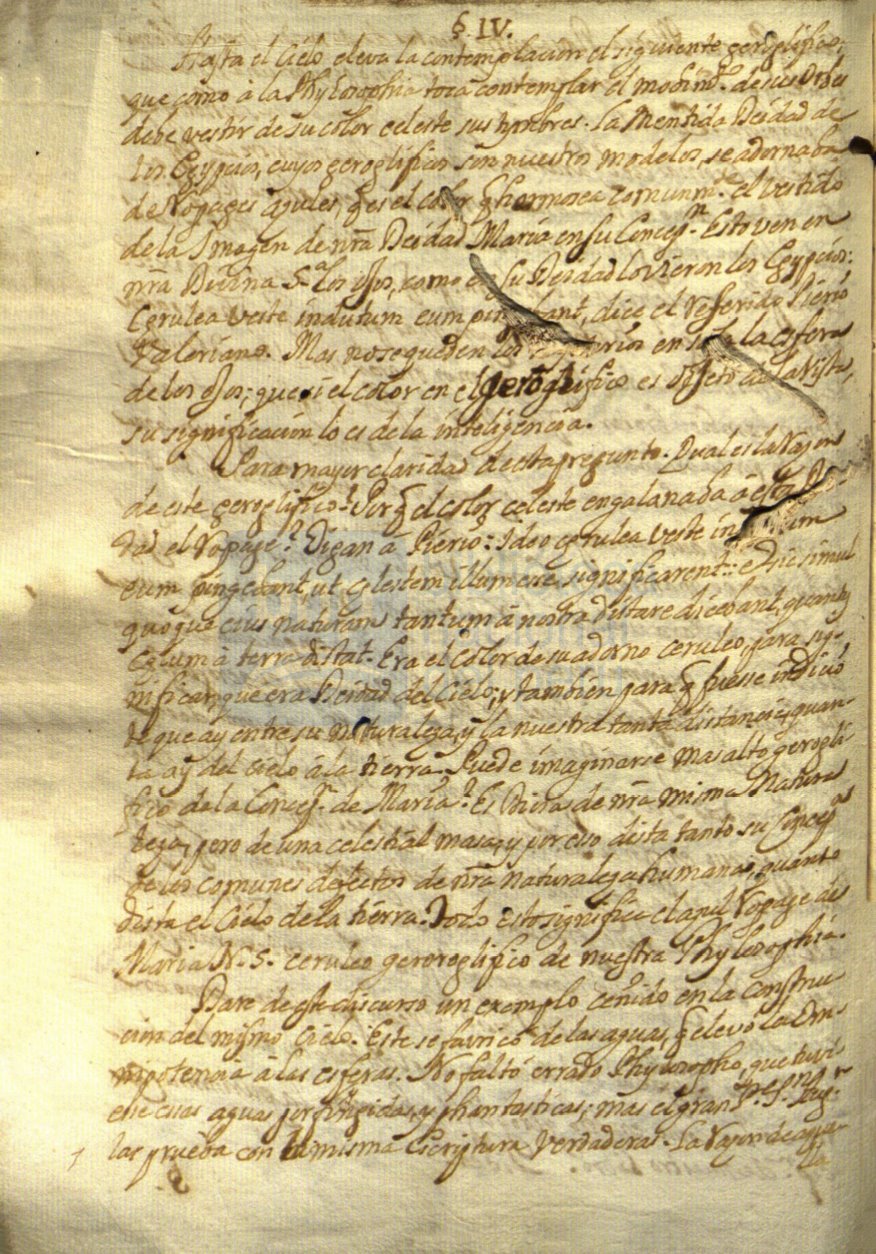 §. IV.
Hasta el Cielo eleva la contemplacion el siguiente geroglifico;
que como à la Phylosophia toca contemplar el mobim.to de sus Orbes
debe vestir de su color celeste sus hombres. La Mentida Deidad de
los Egypcios, cuyos geroglificos son nuestros modelos, se adornaba
de Ropages azules, q̃ es el color q̃ hermosea comunm.te el vestido
de la Imagen de nr̃a Deidad Maria en su Concep.n Esto ven en
nr̃a Divina S.a los ojos, como en su Deidad lo vieron los Egypcios:
Cerulea veste indutum eum pingebant, dice el referido Pierio
Valeriano. Mas no se queden los en sola la esfera
de los ojos; que si el color en el geroglifico es objeto de la vista,
su significacion lo es de la inteligencia.
Para mayor claridad de esta pregunto. Qual es la razon
de este geroglifico? Por q̃ el color celeste engalanaba à esta Dei-
dad el Ropaje? Digan à Pierio: Ideo cerulea veste indutum
eum pingebant, ut celestem illum esse significarent: simul
quoque eius naturam tantum à nostra distare dicebant, quantũ
Celum à terra distat. Era el color de su adorno ceruleo, para sig-
nificar, que era Deidad del Cielo; y tambien para q̃ fuesse indicio
de que ay entre su naturaleza, y la nuestra tanta distancia, quan-
ta ay del cielo à la tierra. Puede imaginarse mas alto gerogli-
fico de la Concep.n de Maria? Es Divina de nr̃a misma Natura
leza, pero de una celestial masa, y por eso dista tanto su Concep.n
de los comunes defectos de nr̃a naturaleza humana, quanto
dista el Cielo de la tierra. Todo esto significa el azul Ropaje de
Maria N. S. ceruleo geroroglifico de nuestra Phylosophia.
Dare de este discurso un exemplo ceñido en la construc
cion del mismo Cielo. Este se fabricò de las aguas, q̃ elevò la Om-
nipotencia à las esferas. No faltó errado Phylosopho, que tuvi-
esse essas aguas por fingidas, y phantasticas; mas el gran
las prueba con la misma Escriptura verdaderas. La razon de aque-
lla